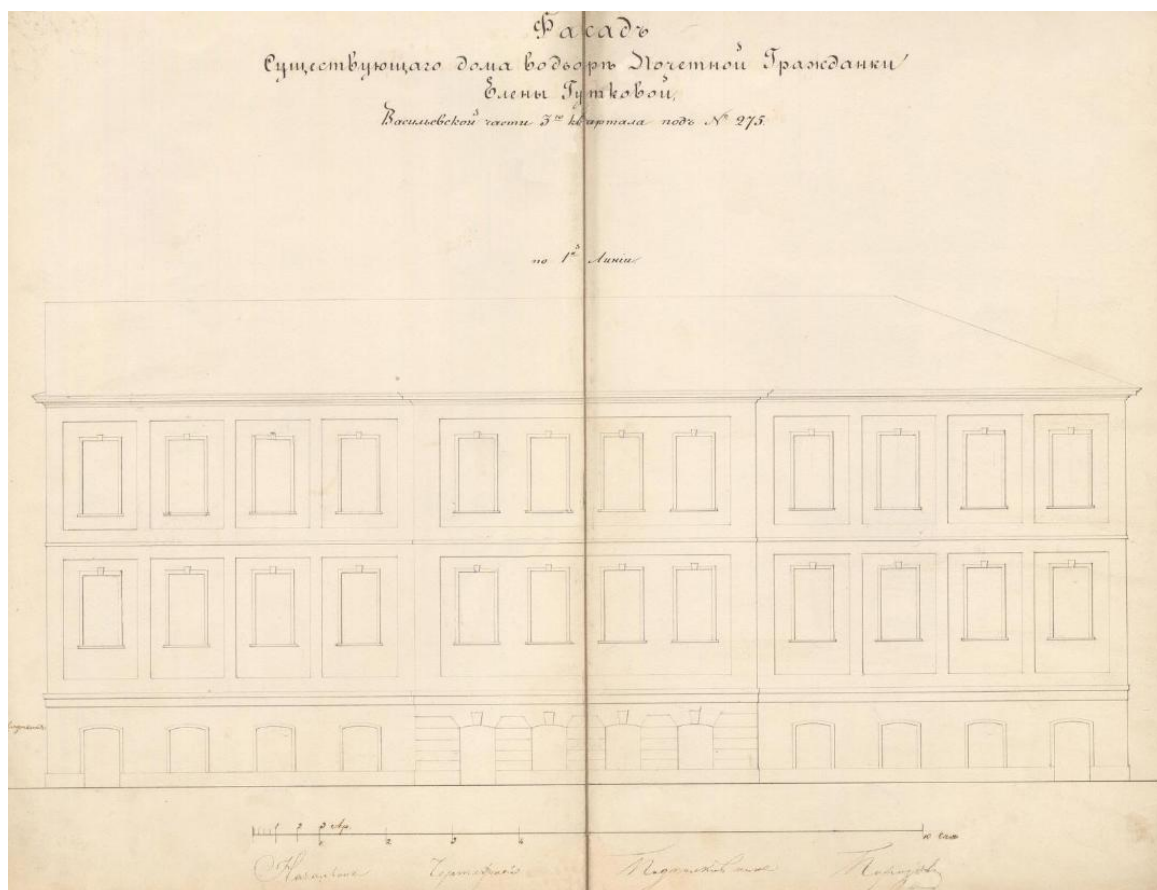 Фасадъ
Существующаго дома водворѣ Почетной Гражданки
Елены Гутковой,
Васильевской части 3го квартала подъ № 275.
по 1й Линіи
1 2 3 Ар.
1 2 3 4 10 Саж